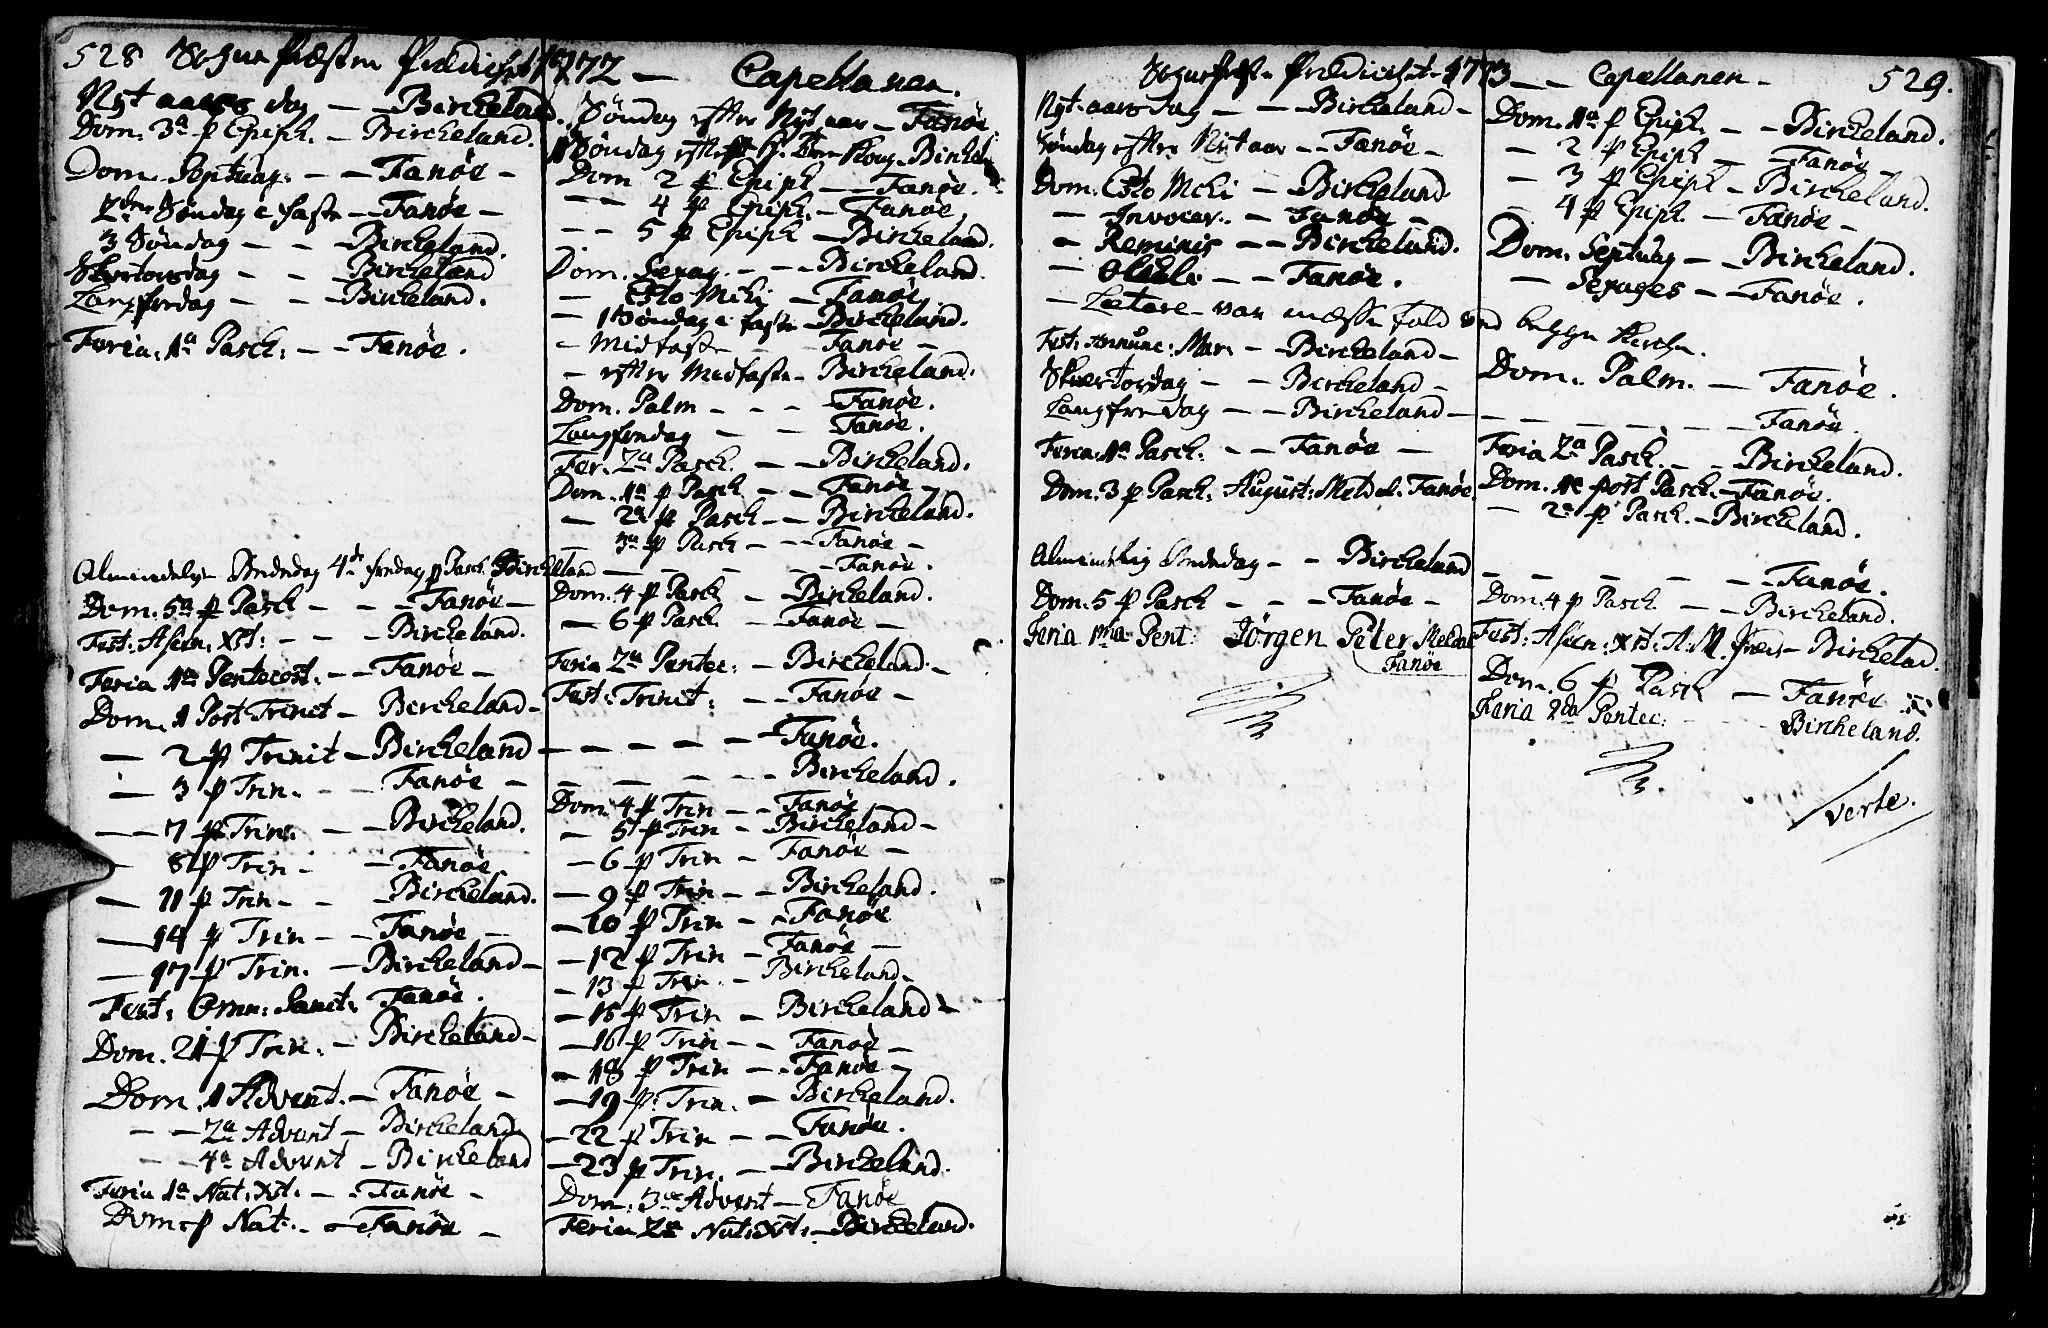 528 Sogne Præsten Prædichet 1772 — Capellanen.
Nyt aars dag — — Bircheland.
Dom. 3a p Epiph. — Bircheland.
Dom. Septuag: — — Fanöe —
2den Söndag i faste — Fanöe —
3 Söndag — — Bircheland.
Skertorsdag — — Bircheland
Langfredag — — Bircheland.
Feria: 1a Pasch: — — Fanöe.
Almindelige Bededag 4de fredag p Pasch Bircheland
Dom. 5a p Pasch — — — Fanöe —
Fest: Ascen: Xst: — — — Bircheland.
Feria 1ma Pentecost: — — Fanöe —
Dom. 1 Post Trinit — Bircheland —
— 2 p Trinit — Bircheland
— 3 p Trin. — — Fanöe —
— — 7 p Trin: — — Bircheland.
— 8 p Trin — — Fanöe
— 11 p Trin — — Bircheland.
— 14 p Trin — — Fanöe —
— 17 p Trin. — Bircheland —
Fest: Omn: Sanct: Fanöe.
Dom. 21 p Trin: — Bircheland —
Dom. 1 Advent. — Fanöe —
— — 2a Advent — Bircheland
— — 4a Advent — Bircheland
Feria 1a Nat: Xst: — — Fanöe —
Dom p Nat. — Fanöe —
Söndag efter Nyt aar — Fanöe
Söndag efter H. 3 Kong. Birchel
Dom 2 p Epiph — — Fanöe.
— — 4 p Epiph. — Fanöe
— — 5 p Epiph — Bircheland.
Dom. Sexag. — — — Bircheland.
— Esto Mihi — Fanöe
— 1 Söndag i faste — Bircheland.
— Midfaste — — Fanöe —
— efter Midfaste — Bircheland.
Dom. Palm — — — Fanöe.
Langfredag — — Fanöe.
Fer. 2a Pasch. — — Bircheland.
Dom. 1a p Pasch — — Fanöe —
— 2a p Pasch — — Bircheland.
— 3a p Pasch — — Fanöe —
— — — — — Fanöe.
Dom. 4 p Pasch — Bircheland.
— 6 p Pasch — Fanöe —
Feria 2a Pentec: — Bircheland —
Fest: Trinit: — — Fanöe —
— — — — — Fanöe.
— — — — — Bircheland.
Dom. 4 p Trin — — Fanöe
— 5 p Trin — Bircheland —
— 6 p Trin — Fanöe —
— 9 p Trin — — Bircheland.
— 10 p Trin — — Fanöe
— 12 p Trin — Fanöe —
— 13 p Trin. — Bircheland —
— 15 p Trin — Bircheland —
— 16 p Trin — — Fanöe —
— 18 p Trin — — Fanöe —
— 19 p: Trin. — Bircheland.
— 22 p Trin — — Fanöe.
— 23 p Trin. — — Bircheland.
Dom: 3a Advent — Fanöe
Feria 2a Nat: Xst: — Bircheland.
Sognepræsten Prædichet 1773 — — Capellanen — 529.
Nyt-aars dag — — Bircheland —
Söndag efter Nit aar — — Fanöe —
Dom: Esto Mihi — Bircheland
— Invocav. — Fanöe —
— Reminis — — Bircheland.
— Oculi — — Fanöe.
— Lætare — var messe fald ved begge Kircher.
Fest: Annunc: Mar: — Bircheland —
Skiertorsdag — — Bircheland —
Langfredag — — Bircheland —
Feria: 1a Pasch: — — Fanöe —
Dom. 3 p Pasch: August: Meldal. Fanöe
Almindelig Bededag — — Bircheland
Dom. 5 p Pasch — — — Fanöe —
Feria 1ma Pent: Jörgen Peter Meldal
Fanöe
Dom. 1a p Epiph. — — Bircheland.
— 2 p Epiph — — Fanöe —
— 3 p Epiph — Bircheland.
— 4 p Epiph — Fanöe —
Dom: Septuag — — Bircheland.
— Sexages — — Fanöe.
Dom. Palm. — Fanöe.
— — — — — Fanöe.
Feria 2a Pasch. — — Bircheland.
Dom. 1a post Pasch. — Fanöe.
— 2a p Pasch. — Bircheland.
— — — — — Fanöe.
Dom. 4 p Pasch — — Bircheland.
Fest: Ascen: Xst: A: M. — Bircheland.
Dom. 6 p Pasch — Fanöe
Feria 2da Pentec: — — — Bircheland.
Verte.